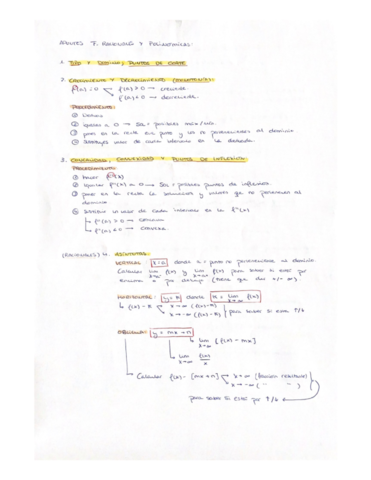 APUNTES F. RACIONALES Y POLINÓMICAS:
1. TIPO Y DOMINIO; PUNTOS DE CORTE
2. CRECIMIENTO Y DECRECIMIENTO (MONOTONÍA):
f'(x) = 0 → f'(x) > 0 → creciente
f'(x) < 0 → decreciente
PROCEDIMIENTO:
① Derivar
② igualar a 0 → Sol = posibles máx/mín.
③ poner en la recta esos ptos y los no pertenecientes al dominio
④ Sustituyes valor de cada intervalo en la derivada.
3. CONCAVIDAD, CONVEXIDAD Y PUNTOS DE INFLEXIÓN:
PROCEDIMIENTO:
① Hacer f''(x)
② Igualar f''(x) = 0 → Sol = posibles puntos de inflexión.
③ poner en la recta la soluciones y valores que no pertenecen al
dominio
④ Sustituir un valor de cada intervalo en la f''(x)
f''(x) > 0 →
f''(x) < 0 →
(RACIONALES) 4. ASÍNTOTAS:
VERTICAL x = a donde a = punto no perteneciente al dominio
Calcular lim f(x) y lim f(x) para saber si está por
encima o por debajo (tiene que dar +/- ∞).
HORIZONTAL: y = k donde k = lim f(x)
x→∞
f(x) - k → x→∞ (f(x) - k)
x→-∞ (f(x) - k) para saber si está ↑/↓
OBLICUA: y = mx + n
lim [f(x) - mx]
x→∞
lim f(x)/x
x→∞
Calcular f(x) - [mx + n] → x→∞ (función resultante)
x→-∞ ( " " )
para saber si está por ↑/↓